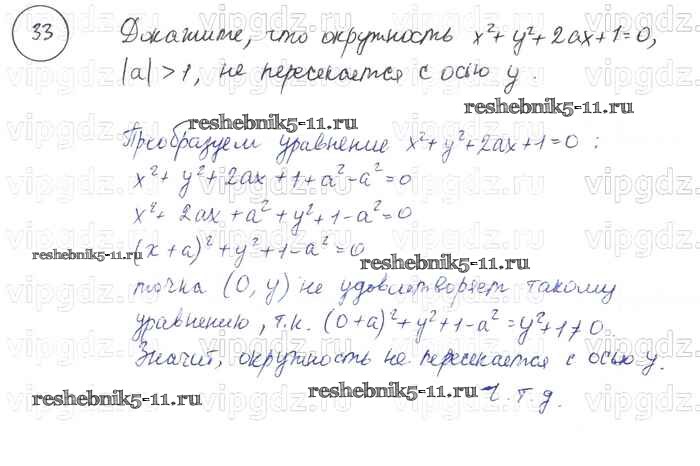 33 Докажите, что окружность x²+y²+2ax+1=0,
|a|>1, не пересекается с осью y.
reshebnik5-11.ru
reshebnik5-11.ru
Преобразуем уравнение x²+y²+2ax+1=0:
x²+y²+2ax+1+a²-a²=0
x²+2ax+a²+y²+1-a²=0
(x+a)²+y²+1-a²=0
reshebnik5-11.ru
reshebnik5-11.ru
точка (0,y) не удовлетворяет такому
уравнению, т.к. (0+a)²+y²+1-a²=y²+1≠0.
Значит, окружность не пересекается с осью y.
reshebnik5-11.ru
reshebnik5-11.ru
Ч.т.д.
vipgdz.ru